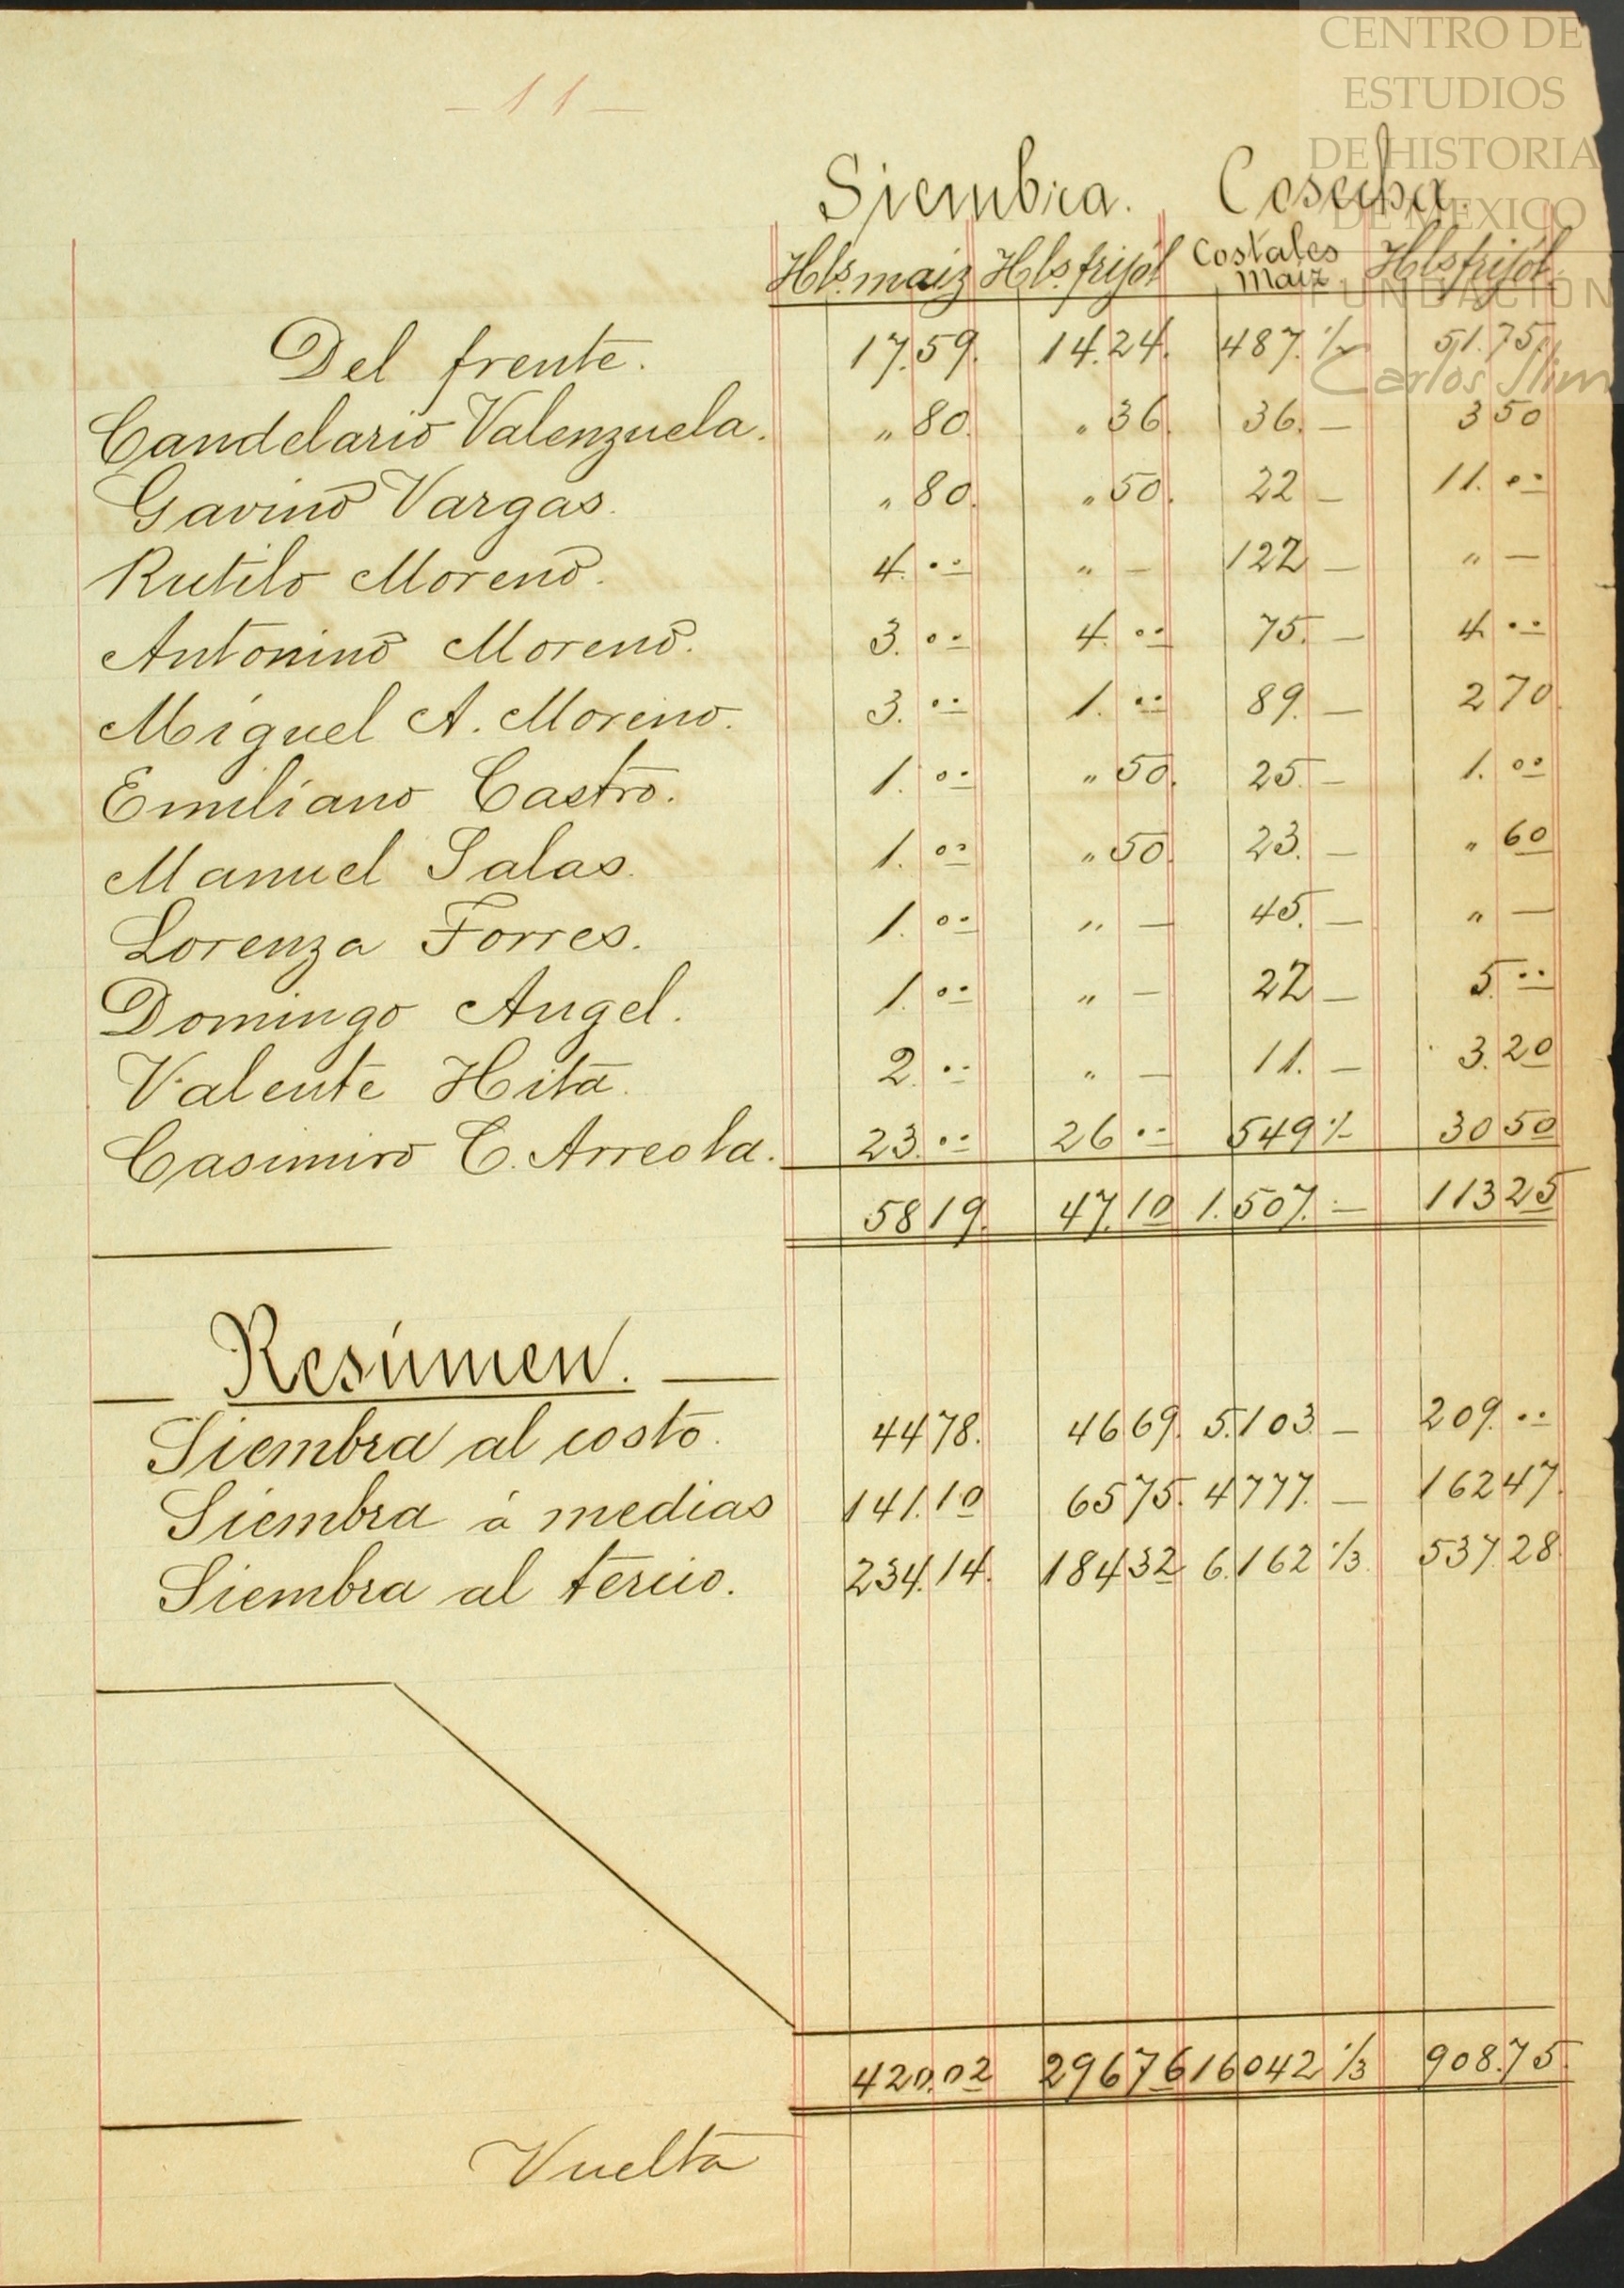 CENTRO DE
ESTUDIOS
DE HISTORIA
DE MEXICO
FUNDACION
Carlos Slim
- 11 -
Siembra. Cosecha.
Hls. maiz Hls. frijól Costales Maiz Hls frijól.
Del frente. 17.59. 14.24. 487. ½ 51.75.
Candelario Valenzuela. " 80. " 36. 36. — 3 50
Gavino Vargas. " 80. " 50. 22 — 11. 00
Rutilo Moreno. 4. 00 " — 122 — " —
Antonino Moreno. 3. 00 4. 00 75. — 4 00
Miguel A. Moreno. 3. 00 1. 00 89. — 2 70.
Emiliano Castro. 1. 00 " 50. 25 — 1. 00
Manuel Salas. 1. 00 " 50. 23. — " 60
Lorenza Torres. 1. 00 " — 45. — " —
Domingo Angel. 1. 00 " — 22 — 5. 00
Valente Hita. 2. 00 " — 11. — 3. 20
Casimiro C. Arreola. 23. 00 26 00 549 ½ 30 50
58 19. 47. 10 1.507. — 113 25
Resúmen.
Siembra al costo. 44 78. 46 69. 5.103. — 209. 00
Siembra á medias 141. 10 65 75. 4777. — 162 47.
Siembra al tercio. 234. 14. 184 32 6.162 ⅓. 537. 28.
420.02 296 76 16042 ⅓ 908.75.
Vuelta